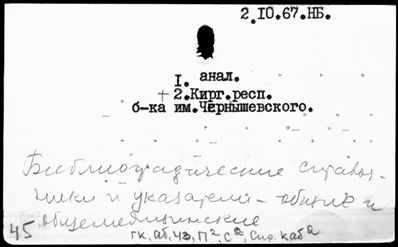 2.10.67.НБ.
1. анал.
+ 2.Кирг.респ.
б-ка им.Чернышевского.
Библиографические справоч-
ники и указатели - общие и
общемедицинские
45
ГК, аб, ЧЗ, П², С², Спр. каб²